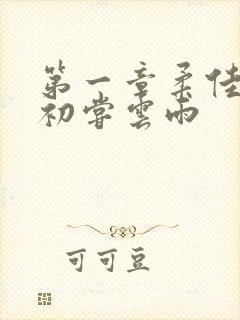 第一章柔佳
初嘗雲雨
可可豆